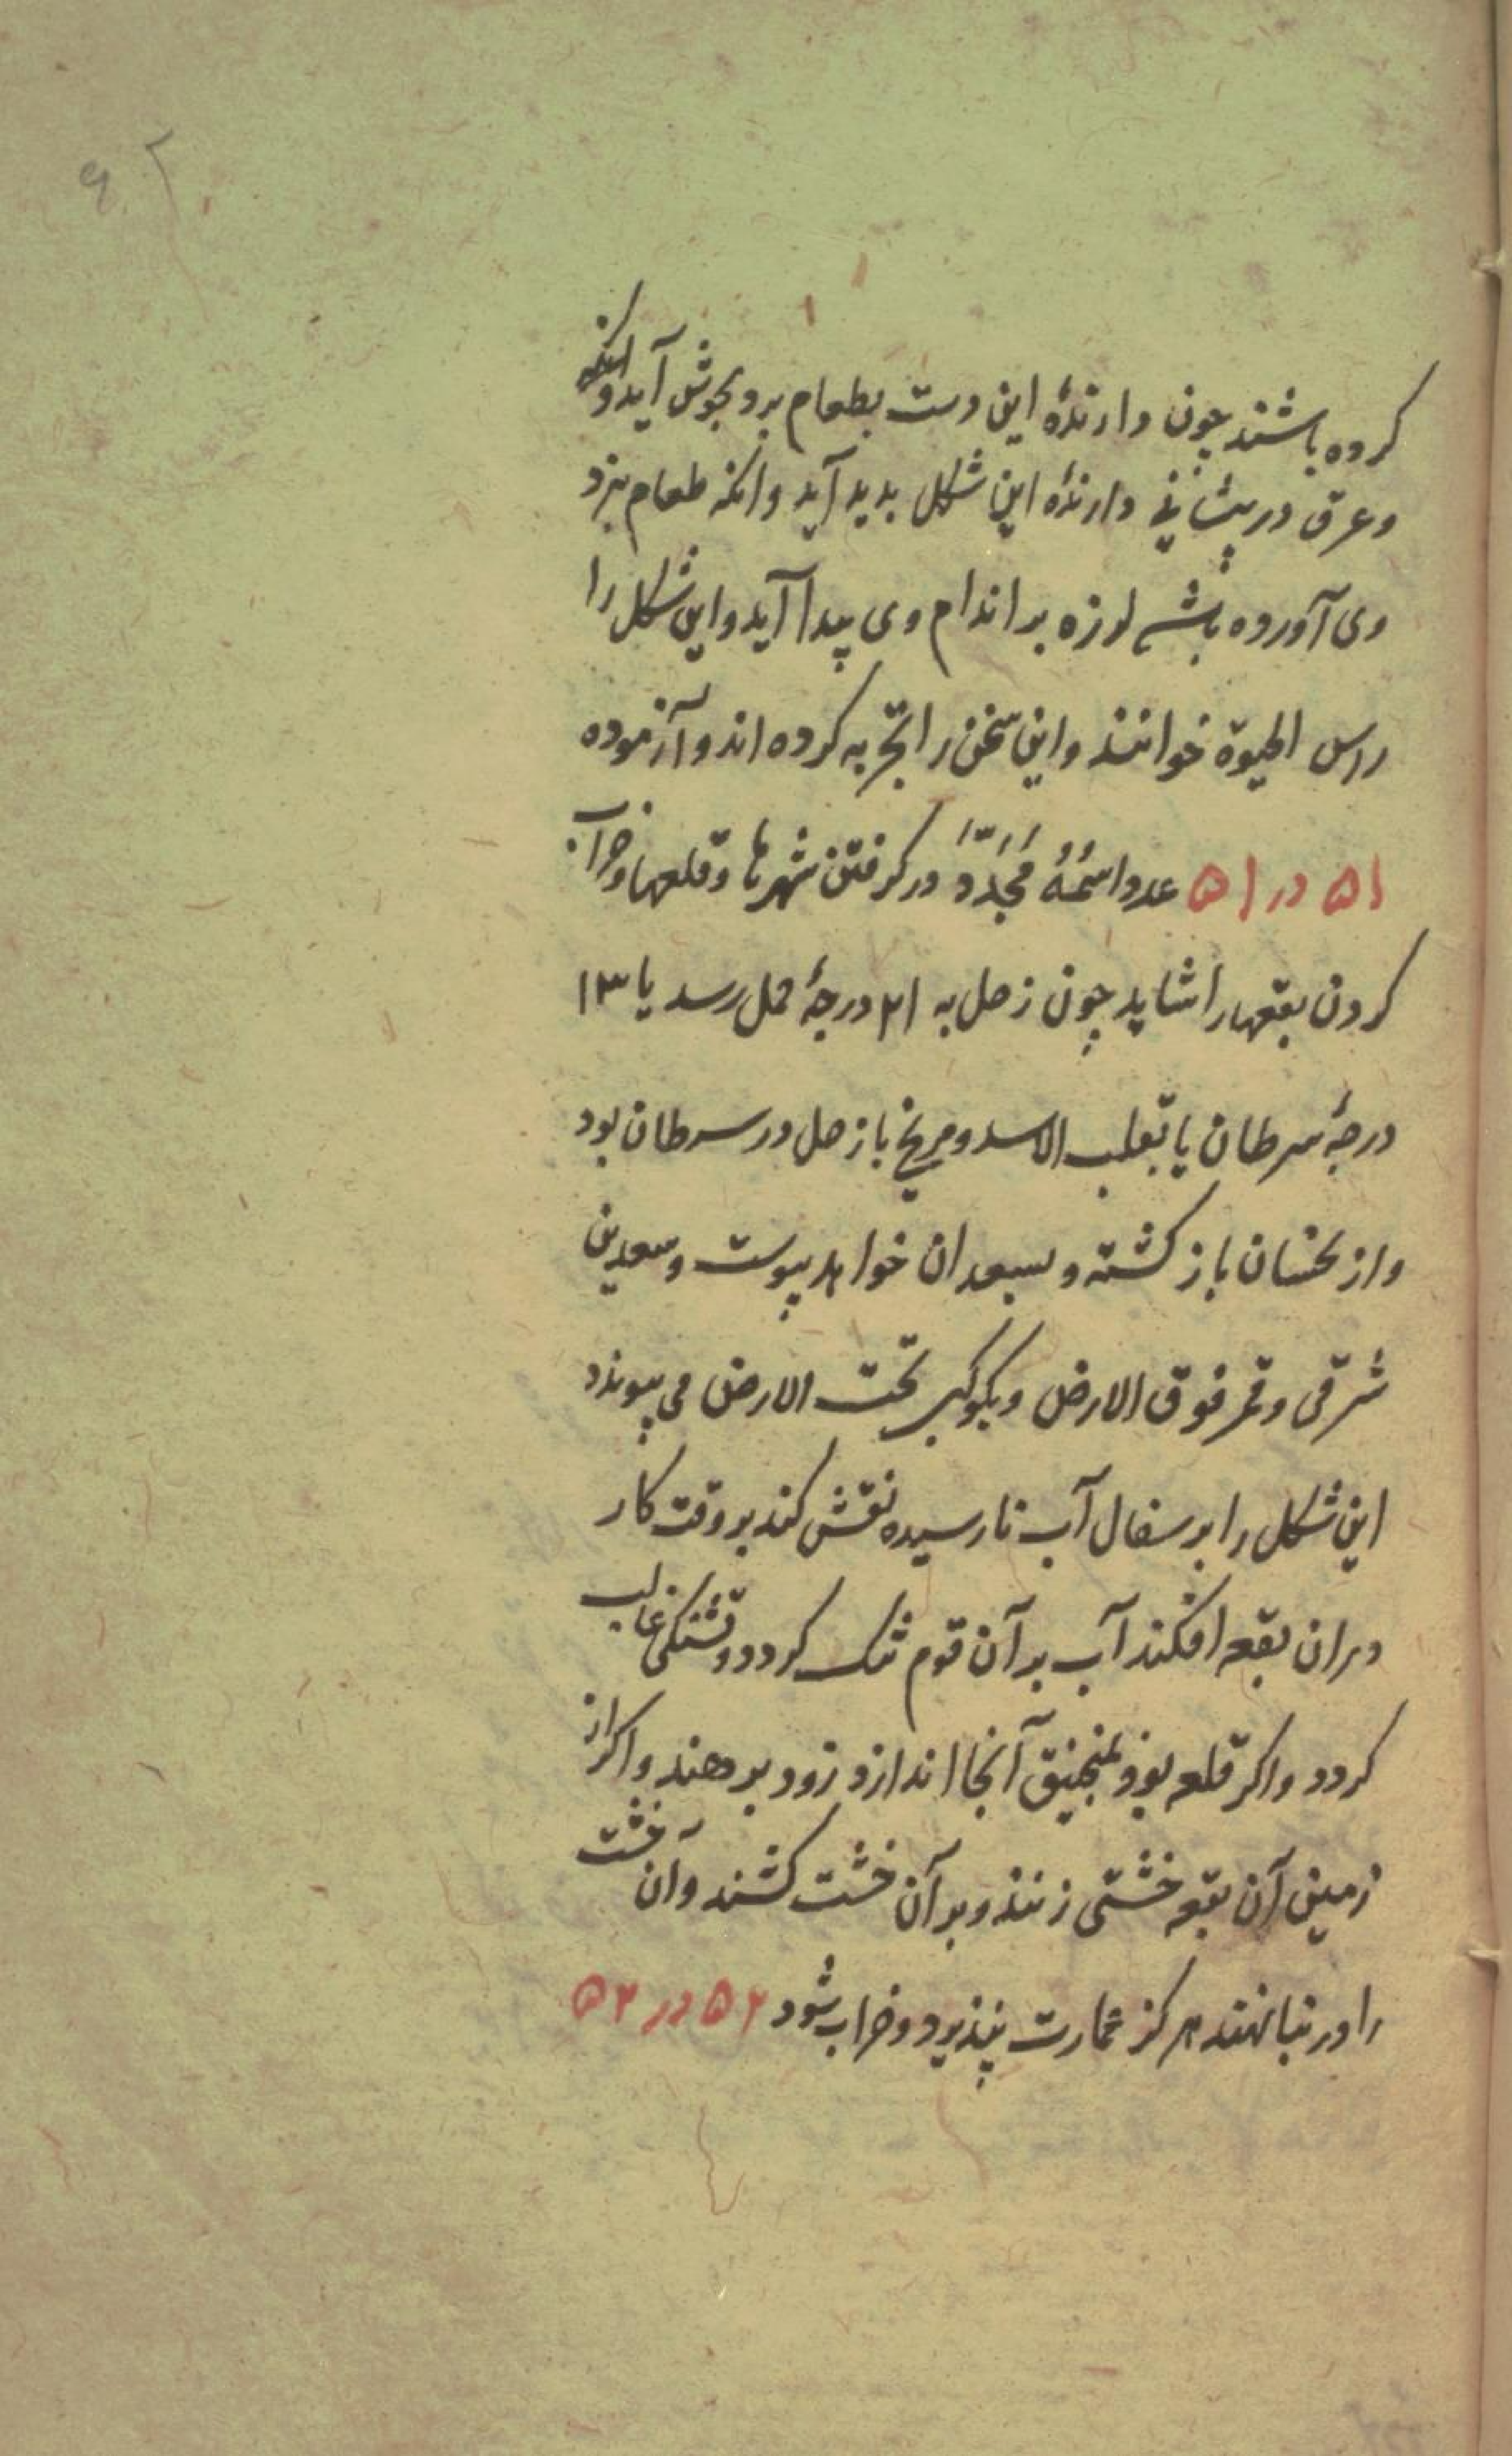 کرده باشند چون دارندهٔ این دست بطعام برد بجوش آید و انکه
و عرق در پیشانی دارندهٔ این شکل بدید آید و انکه طعام نزد
وی آورده باشد لرزه بر اندام وی پیدا آید و این شکل را
راس الحیوة خوانند و این سخن را تجربه کرده اند و آزموده
۵۱ در ۵۱ عدد اسمُهُ مُجَدَّدً در کرفتن شهرها و قلعها و خراب
کردن بقعها را شاید چون زحل به ۲۱ درجهٔ حمل رسد یا ۱۳
درجهٔ سرطان یا بقلب الاسد و مریخ با زحل در سرطان بود
و از نحسان باز کشته و بسعدان خواهد پیوست و سعدین
شرقی و قمر فوق الارض و بکوکب تحت الارض می پیوندد
این شکل را بر سفال آب نارسیده نقش کند بر وقت کار
دران بقعه افکند آب بر آن قوم تنک کردد و تشنکی غالب
کردد و اکر قلعه بود بمنجنیق آنجا اندازد زود بر دهند و اکر از
زمین آن بقعه خشتی زنند و بر آن خشت کشند و آن خشت
را در بنا نهند هرکز عمارت نپذیرد و خراب شود ۵۲ در ۵۲